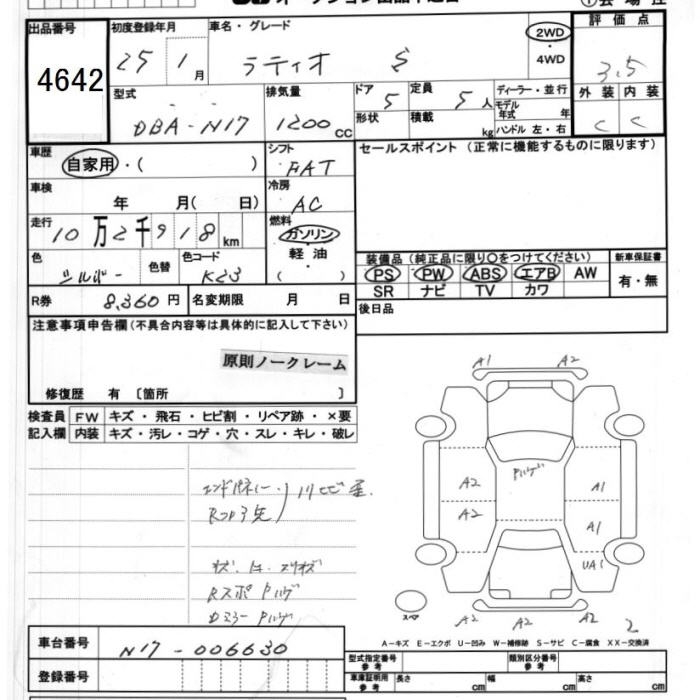 出品番号
4642
初度登録年月
25 1月
車名・グレード
ラティオ S
2WD
・
4WD
評価点
3.5
外装 内装
C C
型式
DBA-N17
排気量
1200 CC
ドア 5
形状
定員 5人
積載 kg
ディーラー・並行
モデル年式 年
ハンドル 左・右
車歴
自家用・( )
シフト
FAT
車検
年 月( 日)
冷房
AC
走行
10万2千918km
燃料
ガソリン
・
軽油
( )
色
シルバー
色替
色コード
K23
R券 8,360円
名変期限 月 日
セールスポイント (正常に機能するものに限ります)
装備品 (純正品に限り○をつけてください)
PS PW ABS エアB AW
SR ナビ TV カワ
新車保証書
有・無
後日品
注意事項申告欄(不具合内容等は具体的に記入して下さい)
原則ノークレーム
修復歴 有 〔箇所 〕
検査員記入欄
FW キズ・飛石・ヒビ割・リペア跡・×要
内装 キズ・汚レ・コゲ・穴・スレ・キレ・破レ
キズ
A1 A2
A2 A1
A2 A1
UA1
A2 A2 A2 2
スペア
A-キズ E-エクボ U-凹み W-補修跡 S-サビ C-腐食 XX-交換済
車台番号 N17-006630
登録番号
型式指定番号 参考
類別区分番号 参考
車庫証明用 参考
長さ cm
幅 cm
高さ cm